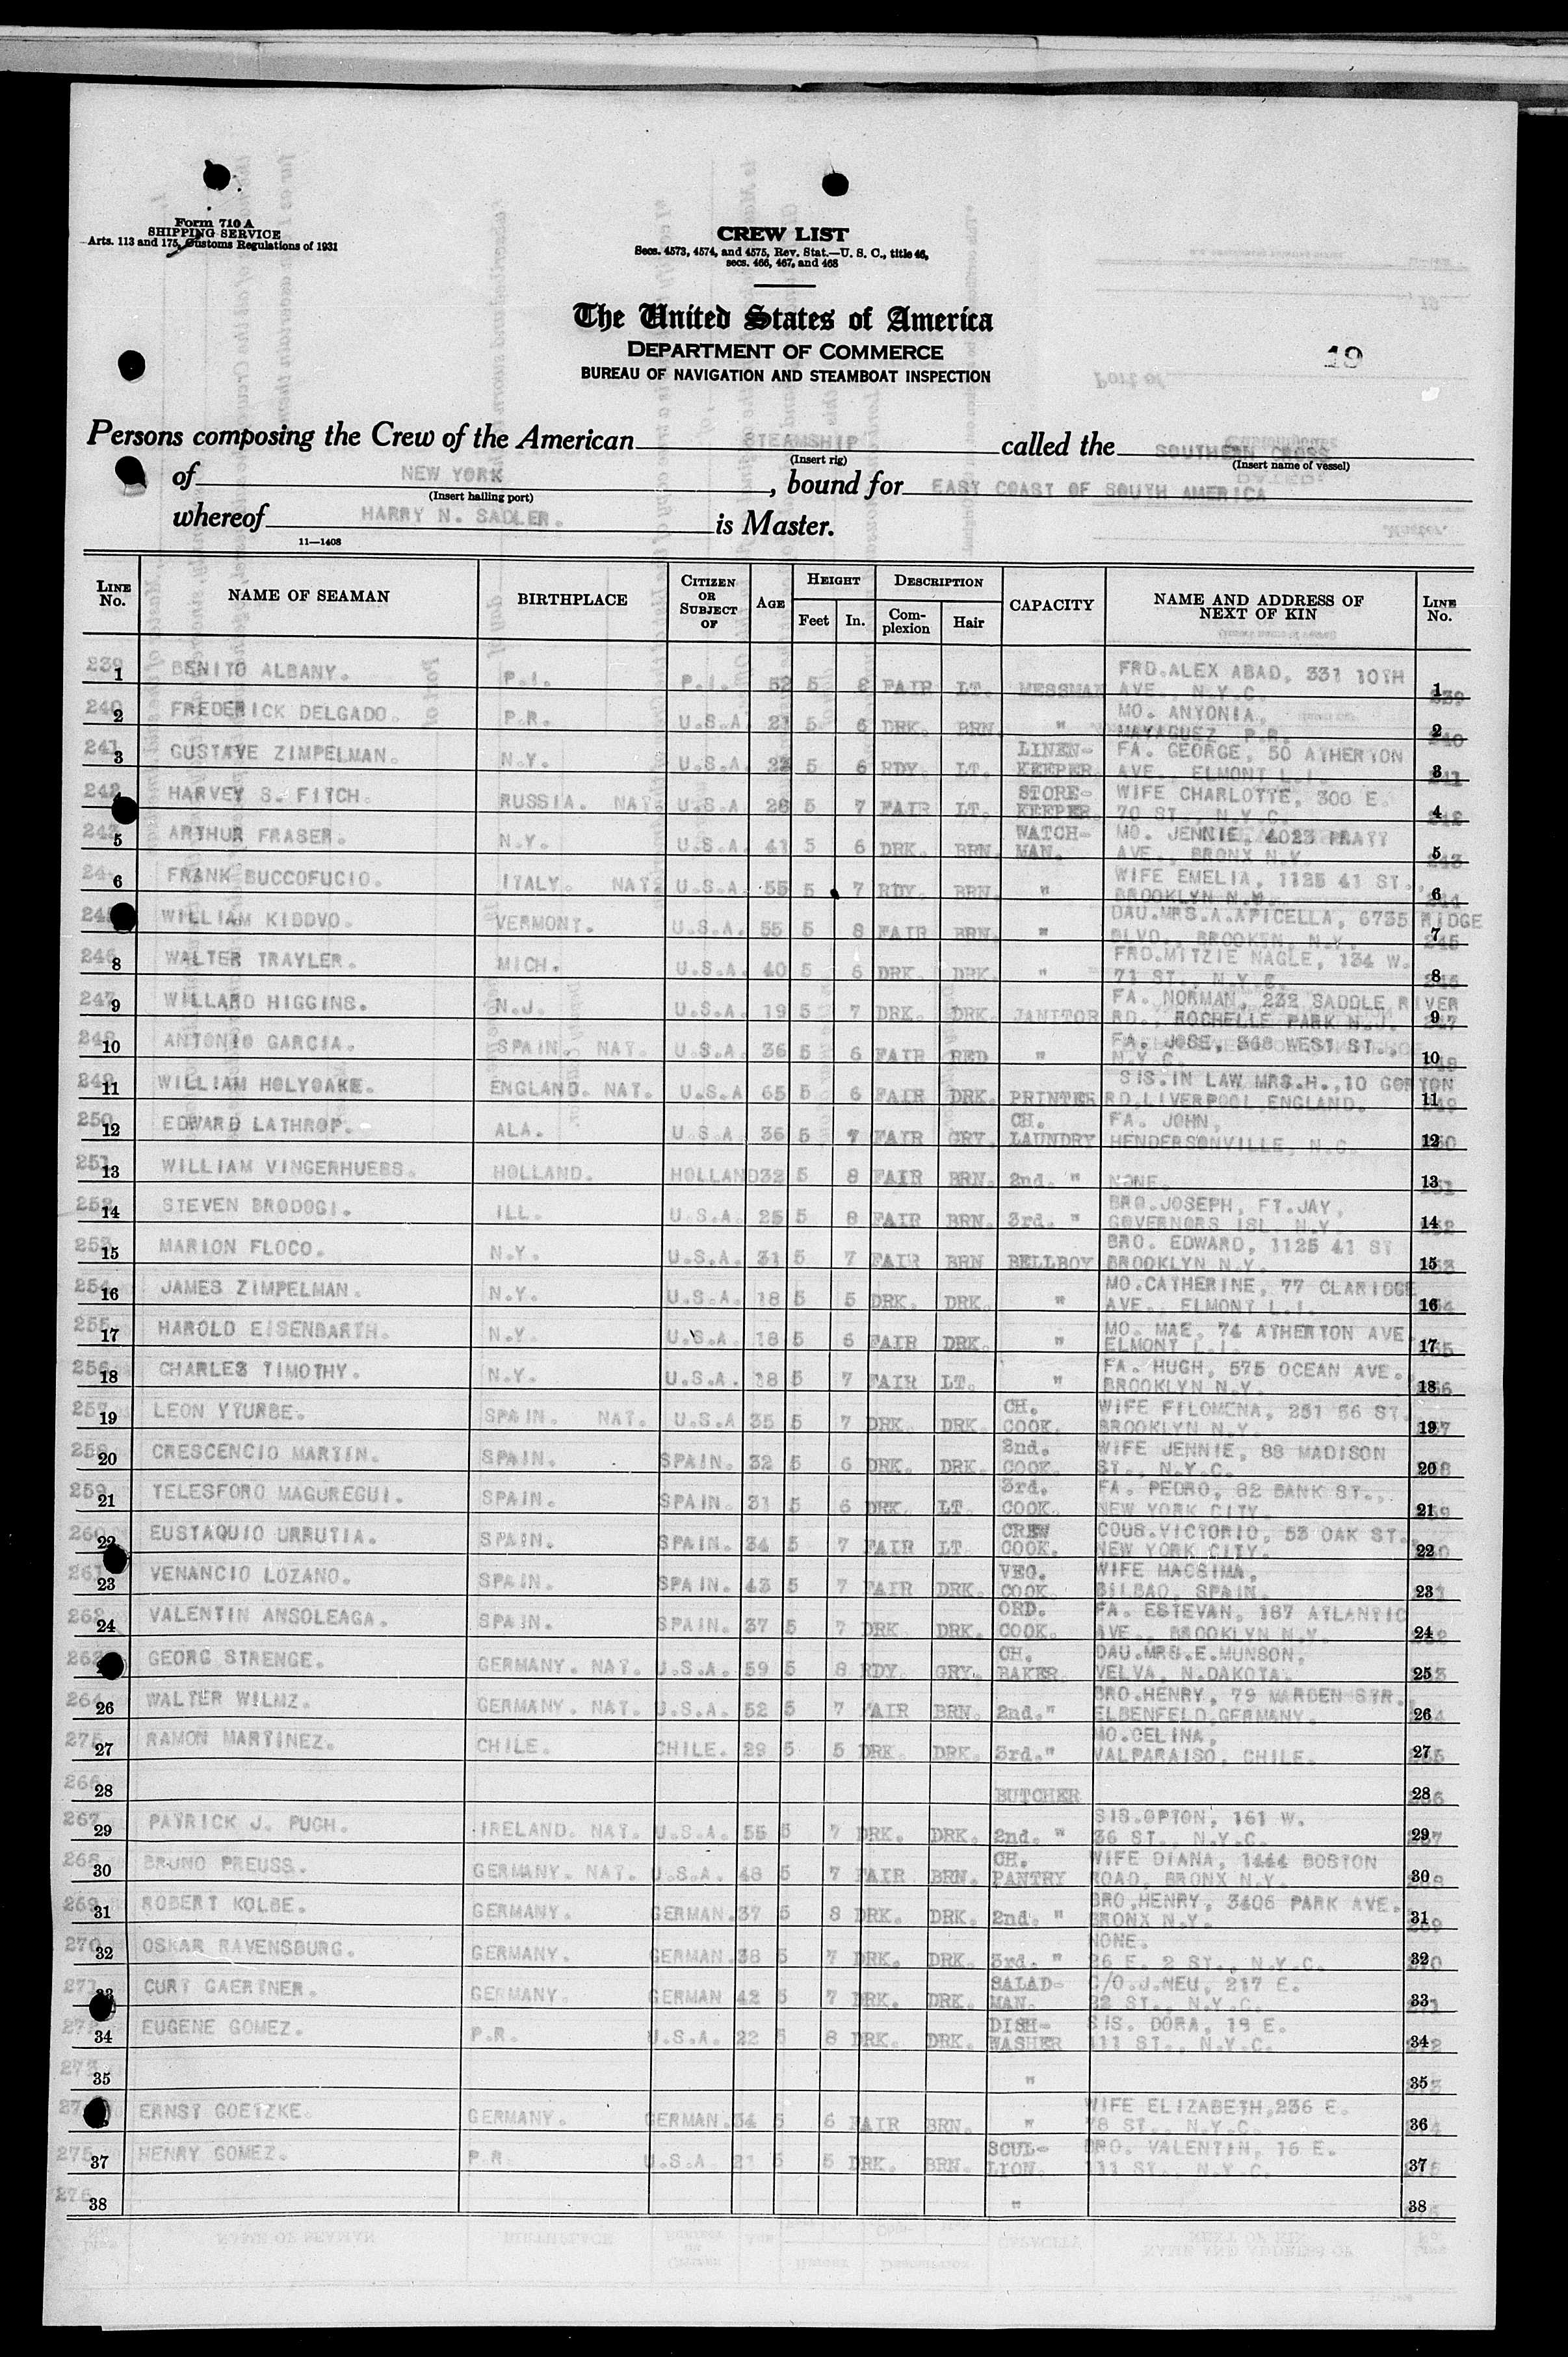 Form 710 A
SHIPPING SERVICE
Arts. 113 and 175, Customs Regulations of 1931
CREW LIST
Secs. 4573, 4574, and 4575, Rev. Stat.—U. S. C., title 46,
secs. 466, 467, and 468
The United States of America
DEPARTMENT OF COMMERCE
BUREAU OF NAVIGATION AND STEAMBOAT INSPECTION
19
Persons composing the Crew of the American STEAMSHIP called the SOUTHERN CROSS
(Insert rig) (Insert name of vessel)
of NEW YORK, bound for EAST COAST OF SOUTH AMERICA
(Insert hailing port)
whereof HARRY N. SADLER. is Master.
11—1408
LINE No. NAME OF SEAMAN BIRTHPLACE CITIZEN OR SUBJECT OF AGE HEIGHT Feet In. DESCRIPTION Complexion Hair CAPACITY NAME AND ADDRESS OF NEXT OF KIN LINE No.
239 1 BENITO ALBANY. P.I. P.I. 52 5 2 FAIR LT. MESSMAN FRD.ALEX ABAD, 331 10TH AVE., N.Y.C. 1 239
240 2 FREDERICK DELGADO. P.R. U.S.A. 21 5 6 DRK. BRN. " MO. ANYONIA, MAYAGUEZ P.R. 2 240
241 3 GUSTAVE ZIMPELMAN. N.Y. U.S.A. 23 5 6 RDY. LT. LINEN-KEEPER. FA. GEORGE, 50 ATHERTON AVE., ELMONT L.I. 3 241
242 HARVEY S. FITCH. RUSSIA. NAT. U.S.A 26 5 7 FAIR LT. STORE-KEEPER. WIFE CHARLOTTE, 300 E. 70 ST., N.Y.C. 4 242
243 5 ARTHUR FRASER. N.Y. U.S.A. 41 5 6 DRK. BRN. WATCH-MAN. MO. JENNIE, 4023 PRATT AVE., BRONX N.Y. 5 243
244 6 FRANK BUCCOFUCIO. ITALY. NAT. U.S.A. 55 5 7 RDY. BRN. " WIFE EMELIA, 1125 41 ST., BROOKLYN N.Y. 6 244
245 WILLIAM KIDDVO. VERMONT. U.S.A. 55 5 8 FAIR BRN. " DAU.MRS.A.APICELLA, 6735 RIDGE BLVD., BROOKYN, N.Y. 7 245
246 8 WALTER TRAYLER. MICH. U.S.A. 40 5 6 DRK. DRK. " FRD.MITZIE NAGLE, 134 W. 71 ST., N.Y.C. 8 246
247 9 WILLARD HIGGINS. N.J. U.S.A. 19 5 7 DRK. DRK. JANITOR FA. NORMAN, 232 SADDLE RIVER RD., ROCHELLE PARK N.J. 9 247
248 10 ANTONIO GARCIA. SPAIN. NAT. U.S.A. 36 5 6 FAIR RED " FA. JOSE, 368 WEST ST., N.Y.C. 10 248
249 11 WILLIAM HOLYOAKE. ENGLAND. NAT. U.S.A 65 5 6 FAIR DRK. PRINTER SIS.IN LAW MRS.H.,10 GORTON RD,LIVERPOOL,ENGLAND. 11 249
250 12 EDWARD LATHROP. ALA. U.S.A 36 5 7 FAIR GRY. CH. LAUNDRY FA. JOHN, HENDERSONVILLE, N.C. 12 250
251 13 WILLIAM VINGERHUEBS. HOLLAND. HOLLAND 32 5 8 FAIR BRN. 2nd. " NONE. 13 251
252 14 STEVEN BRODOGI. ILL. U.S.A. 25 5 8 FAIR BRN. 3rd. " BRO.JOSEPH, FT.JAY, GOVERNORS ISL. N.Y. 14 252
253 15 MARION FLOCO. N.Y. U.S.A. 31 5 7 FAIR BRN BELLBOY BRO. EDWARD, 1125 41 ST BROOKLYN N.Y. 15 253
254 16 JAMES ZIMPELMAN. N.Y. U.S.A. 18 5 5 DRK. DRK. " MO.CATHERINE, 77 CLARIDGE AVE., ELMONT L.I. 16 254
255 17 HAROLD EISENBARTH. N.Y. U.S.A. 18 5 6 FAIR DRK. " MO. MAE, 74 ATHERTON AVE. ELMONT L.I. 17 255
256 18 CHARLES TIMOTHY. N.Y. U.S.A. 18 5 7 FAIR LT. " FA. HUGH, 575 OCEAN AVE. BROOKLYN N.Y. 18 256
257 19 LEON YTURBE. SPAIN. NAT. U.S.A 35 5 7 DRK. DRK. CH. COOK. WIFE FILOMENA, 251 56 ST. BROOKLYN N.Y. 19 257
258 20 CRESCENCIO MARTIN. SPAIN. SPAIN. 32 5 6 DRK. DRK. 2nd. COOK. WIFE JENNIE, 88 MADISON ST., N.Y.C. 20 258
259 21 TELESFORO MAGUREGUI. SPAIN. SPAIN. 31 5 6 DRK. LT. 3rd. COOK. FA. PEDRO, 82 BANK ST., NEW YORK CITY. 21 259
260 22 EUSTAQUIO URRUTIA. SPAIN. SPAIN. 34 5 7 FAIR LT. CREW COOK. COUS.VICTORIO, 53 OAK ST. NEW YORK CITY. 22 260
261 23 VENANCIO LOZANO. SPAIN. SPAIN. 43 5 7 FAIR DRK. VEG. COOK WIFE MACSIMA, BILBAO, SPAIN. 23 261
262 24 VALENTIN ANSOLEAGA. SPAIN. SPAIN. 37 5 7 DRK DRK. ORD. COOK. FA. ESTEVAN, 187 ATLANTIC AVE., BROOKLYN N.Y. 24 262
263 GEORG STRENGE. GERMANY. NAT. U.S.A. 59 5 8 RDY. GRY. CH. BAKER. DAU.MRS.E.MUNSON, VELVA, N.DAKOTA. 25 263
264 26 WALTER WILMZ. GERMANY. NAT. U.S.A. 52 5 7 FAIR BRN. 2nd." BRO.HENRY, 79 MARDEN STR., ELBENFELD,GERMANY. 26 264
275 27 RAMON MARTINEZ. CHILE. CHILE. 29 5 5 DRK. DRK. 3rd." MO.CELINA, VALPARAISO, CHILE. 27 265
266 28 BUTCHER 28 266
267 29 PATRICK J. PUGH. IRELAND. NAT. U.S.A. 55 5 7 DRK. DRK. 2nd. " SIS.OPTON, 161 W. 36 ST., N.Y.C. 29 267
268 30 BRUNO PREUSS. GERMANY. NAT. U.S.A. 48 5 7 FAIR BRN. CH. PANTRY WIFE DIANA, 1444 BOSTON ROAD, BRONX N.Y. 30 268
269 31 ROBERT KOLBE. GERMANY. GERMAN. 37 5 8 DRK. DRK. 2nd. " BRO.HENRY, 3406 PARK AVE. BRONX N.Y. 31 269
270 32 OSKAR RAVENSBURG. GERMANY. GERMAN. 38 5 7 DRK. DRK. 3rd. " NONE. 26 E. 2 ST., N.Y.C. 32 270
271 33 CURT GAERTNER. GERMANY. GERMAN 42 5 7 DRK. DRK. SALAD-MAN. C/O.J.NEU, 217 E. 82 ST., N.Y.C. 33 271
272 34 EUGENE GOMEZ. P.R. U.S.A. 22 5 8 DRK. DRK. DISH-WASHER SIS. DORA, 19 E. 111 ST., N.Y.C. 34 272
273 35 " 35 273
274 ERNST GOETZKE. GERMANY. GERMAN. 34 5 6 FAIR BRN. " WIFE ELIZABETH,236 E. 78 ST., N.Y.C. 36 274
275 37 HENRY GOMEZ. P.R. U.S.A. 21 5 5 DRK. BRN. SCUL-LION. BRO. VALENTIN, 16 E. 111 ST., N.Y.C. 37 275
276 38 " 38 276